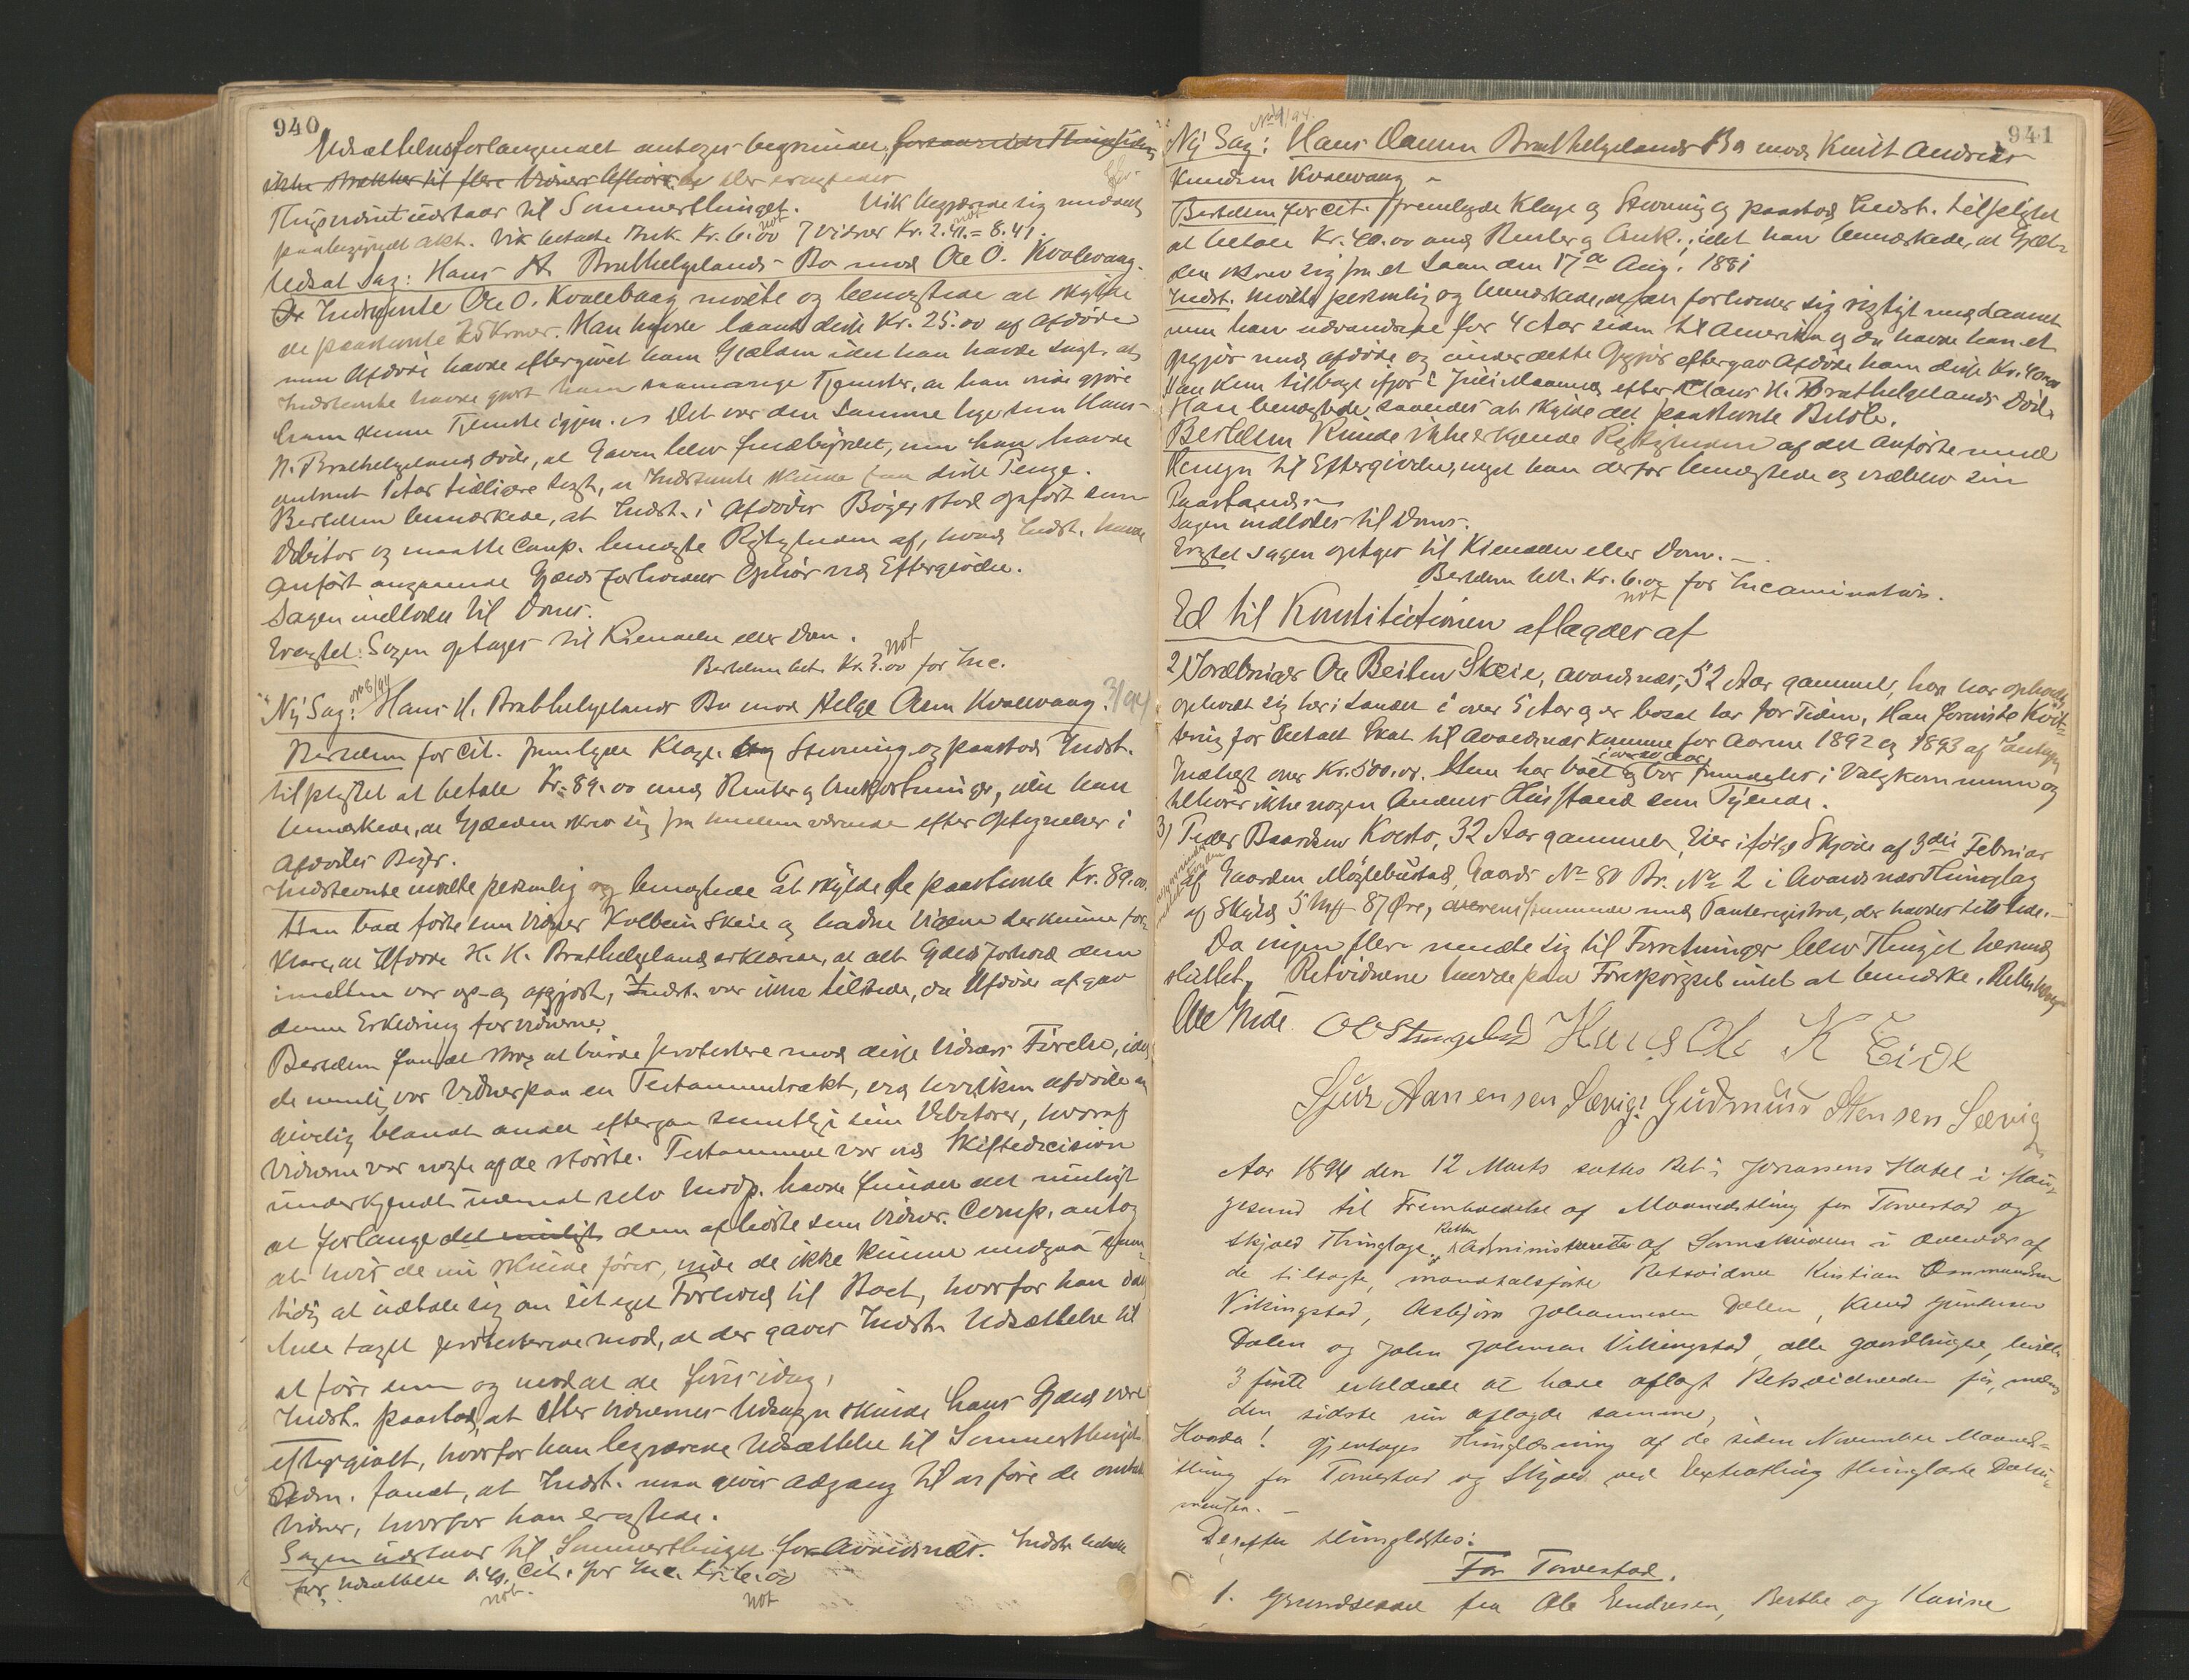 940
Udsættelsesforlangendet antages begrundet, foraarsrider Thingsiden
ikke strækker til flere Vidners Afhøring blev eragtedes
Thingsvidnet udstaar til Sommerthinget. Vik begjærede sig meddelt
paabegyndt Akt. Vik betalte Ink. Kr. 6.00 7 Vidner Kr. 2.41 = 8.41.
not not
Udsat Sag: Hans H. Brathelgelands Bo mod Ole O. Kvalevaag.
Indstevnte Ole O. Kvalevaag mødte og benægtede at skylde
de paastevnte 25 Kroner. Han havde laant disse Kr. 25.00 af Afdøde
men Afdøde havde eftergivet ham Gjælden idet han havde sagt, at
Indstevnte havde gjort ham saamange Tjenester, at han vilde gjøre
ham denne Tjeneste igjen. Det var den Samme Uge som Hans
H. Brathelgeland døde, at Gaven blev fuldbyrdet, men han havde
omtrent 1 Aar tidligere sagt, at Indstevnte skulde faa disse Penge.
Bertelsen bemærkede, at Indst. i Afdødes Bøger stod opført som
Debitor og maatte Comp. benægte Rigtigheden af, hvad Indst. havde
anført angaaende Gjældsforholdets Ophør ved Eftergivelse.
Sagen indlodes til Doms.
Eragtet: Sagen optages til Kiendelse eller Dom.
not
Bertelsen bet. Kr. 3.00 for Inc.
No 8/94
Ny Sag: Hans H. Brathelgelands Bo mod Helge Olsen Kvalevaag. 3/94
Bertelsen for Cit. fremlagde Klage og Stevning og paastod Indst.
tilpligtet at betale Kr. 89.00 med Renter og Omkostninger, idet han
bemærkede, at Gjælden skrev sig fra mellemværende efter Optegnelser i
Afdødes Bøger.
Indstevnte mødte personlig og benægtede at skylde de paastevnte Kr. 89.00.
Han bad føre som Vidner Kolbein Skeie og Vidne der kunne for-
klare, at Afdøde H. H. Brathelgeland erklærede, at alt Gjældsforhold dem
imellem var op- og afgjort, Indst. var ikke tilstede, da Afdøde afgav
denne Erklæring for vidnerne.
Bertelsen fandt strax at burde protestere mod disse Vidners Førelse, idet
de nemlig var Vidner paa en Testamentsakt, ved hvilken Afdøde an-
givelig blandt andet eftergav samtlige sine Debitorer, hvoraf
Vidnerne var nogle af de største. Testamentet var ved Skiftedecision
underkjendt uanseet selv Modp. havde fundet det muligt
at forlange det muligt dem afhørte som Vidner. Comp. antog
at hvis de nu skulde føres, vilde de ikke kunne undgaa sam-
tidig at udtale sig om sit eget Forhold til Boet, hvorfor han
hele taget protesterede mod, at der gaves Indst. Udsættelse til
at føre dem og mod at de føres idag.
Indst. paastod, at efter vidnernes Udsagn skulde hans Gjæld være
eftergivet, hvorfor han begjærede Udsættelse til Sommerthinget.
Adm. fandt, at Indst. maa gives Adgang til at føre de omtalte
Vidner, hvorfor han eragtede.
Sagen udstaar til Sommerthinget for Avaldsnæs. Indst. betalte
for Udsættelse 0.40. Cit. for Inc. Kr. 6.00
not. not
941
No 9/94.
Ny Sag: Hans Brathelgelands Bo mod Knut Andreas
Knudsen Kvalevaag
Bertelsen for Cit. fremlagde Klage og Stevning og paastod Indst. tilpligtet
at betale Kr. 40.00 med Renter og Omk., idet han bemærkede, at Gjæl-
den skrev sig fra et Laan den 17de Aug. 1881
Indst. mødte personlig og bemærkede, at han forholder sig rigtigt med Laanet
men han udvandrede for 4 Aar siden til Amerika og da havde han et
Opgjør med Afdøde og under dette Opgjør eftergav Afdøde ham disse Kr. 40.00
Han kom tilbage ifjor i Juli Maaned efter Hans H. Brathelgelands Død.
Han benægtede saaledes at skylde det paastevnte Beløb.
Bertelsen kunde ikke erkjende Rigtigheden af det anførte med
Hensyn til Eftergivelse, noget han derfor benægtede og vedblev sin
Paastand.
Sagen indlodes til Doms.
Eragtet Sagen optages til Kiendelse eller Dom.
Bertelsen bet. Kr. 6.00 for Incamination.
not
Ed til Konstitutionen aflagdes af
2) Gaardbruger Ole Skeie, Avaldsnæs, 52 Aar gammel, han har opholdt
opholdt sig her i Landet i over 5 Aar og er bosat her for Tiden. Han foreviste Kvit-
tering for betalt Skat til Avaldsnæs Kommune for Aarene 1892 og 1893 af
Indtægt over Kr. 500.00. Han har boet og bor fremdeles i Valgkommunen og
tilhører ikke nogen Andens Husstand som Tyende.
3) Peder Baardsen Kolstø, 32 Aar gammel, Eier ifølge Skjøde af 3die Februar
af Gaarden Møglebustad, Gaards No 80 Br. No 2 i Avaldsnæs Thinglag
af Skyld 5 Mk 87 Øre, overensstemmende med Panteregistret, der havdes tilstede.
Da ingen flere meldte sig til Forretninger blev Thinget hermed
sluttet. Retsvidnerne havde paa Forespørgsel intet at bemærke. Retten hævet
Hans Ole K Eide
Sjur Aanensen Sævig. Gudmund Stensen Sævig
Aar 1894 den 12 Marts sattes Ret i Jonassens Hotel i Hau-
gesund til Fremholdelse af Maanedsthing for Torvestad og
Skjold Thinglage. Retten administreret af Sorenskriveren i Overvær af
de tilsagte, mandtalsførte Retsvidner Kristian Osmundsen
Vikingstad, Asbjørn Johannesen Dalen, Knud Gundersen
Dalen og John Johnsen Vikingstad, alle gaardbrugere, hvilke
3 første erklærede at have aflagt Retsvidneeden før, medens
den sidste nu aflagde samme,
Hvorda! Gjentages Thinglæsning af de siden November Maaneds-
thing for Torvestad og Skjold ved Extrathing thinglæste Doku-
menter. —
Derefter thinglæstes:
For Torvestad.
1. Grundseddel fra Ole Endresen, Berthe og Karine